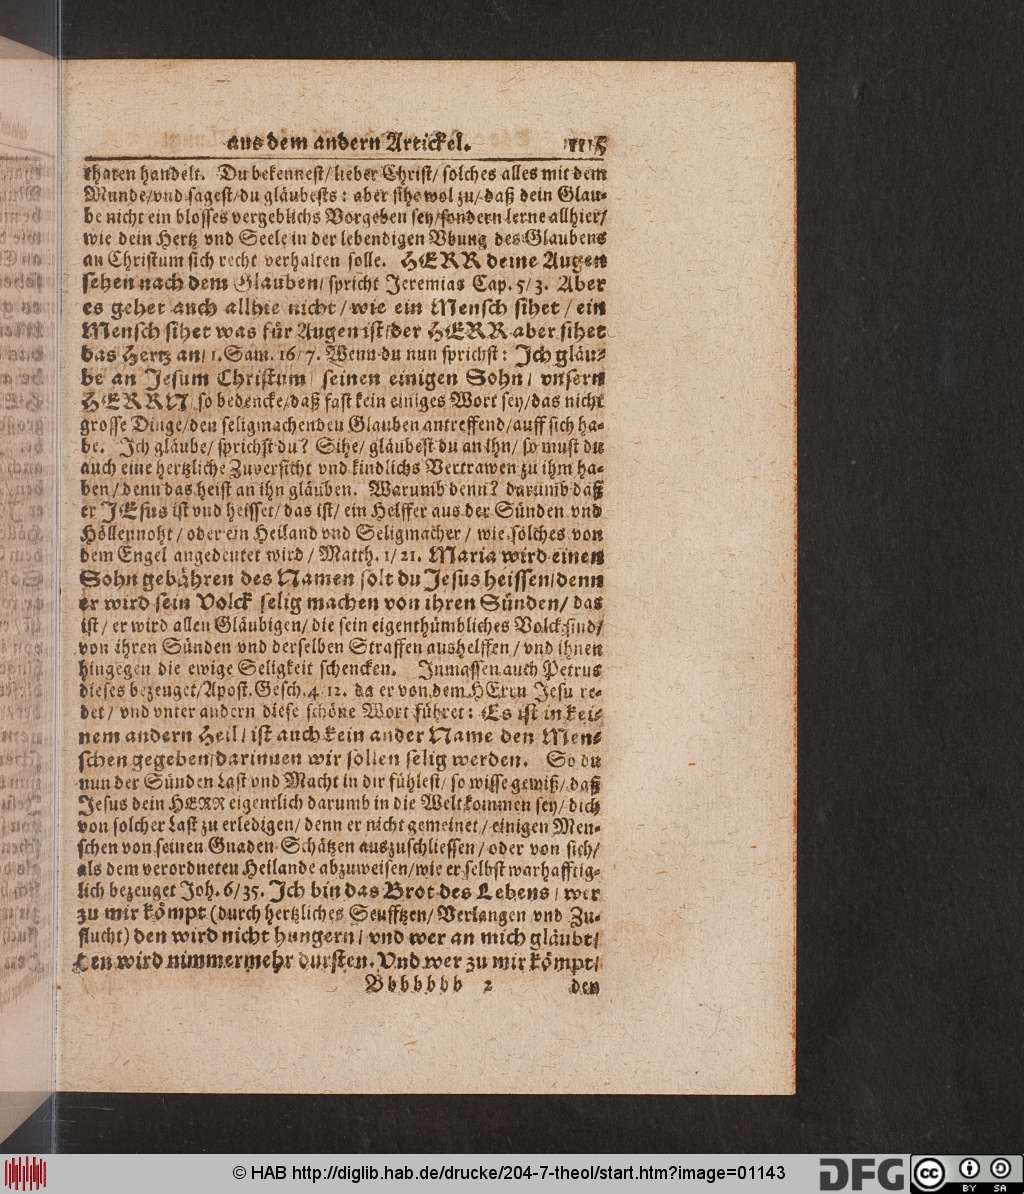 aus dem andern Artickel. 1115
thaten handelt. Du bekennest/ lieber Christ/ solches alles mit dem
Munde/ vnd sagest/ du gläubests: aber sihe wol zu/ daß dein Glau-
be nicht ein blosses vergeblichs Vorgeben sey/ sondern lerne allhier/
wie dein Hertz vnd Seele in der lebendigen Vbung des Glaubens
an Christum sich recht verhalten solle. HERR deine Augen
sehen nach dem Glauben/ spricht Jeremias Cap. 5/3. Aber
es gehet auch allhie nicht/ wie ein Mensch sihet/ ein
Mensch sihet was für Augen ist/ der HERR aber sihet
das Hertz an/ 1. Sam. 16/7. Wenn du nun sprichst: Ich gläu-
be an Jesum Christum/ seinen einigen Sohn/ vnsern
HERRN/ so bedencke/ daß fast kein einiges Wort sey/ das nicht
grosse Dinge/ den seligmachenden Glauben antreffend/ auff sich ha-
be. Ich gläube/ sprichst du? Sihe/ gläubest du an ihn/ so must du
auch eine hertzliche Zuversicht vnd kindlichs Vertrawen zu ihm ha-
ben/ denn das heist an ihn gläuben. Warumb denn? darumb daß
er JEsus ist vnd heisset/ das ist/ ein Helffer aus der Sünden vnd
Höllennoht/ oder ein Heiland vnd Seligmacher/ wie solches von
dem Engel angedeutet wird/ Matth. 1/21. Maria wird einen
Sohn gebähren des Namen solt du Jesus heissen/ denn
er wird sein Volck selig machen von ihren Sünden/ das
ist/ er wird allen Gläubigen/ die sein eigenthümbliches Volck sind/
von ihren Sünden vnd derselben Straffen aushelffen/ vnd ihnen
hingegen die ewige Seligkeit schencken. Inmassen auch Petrus
dieses bezeuget/ Apost. Gesch. 4/12. da er von dem HErrn Jesu re-
det/ vnd vnter andern diese schöne Wort führet: Es ist in kei-
nem andern Heil/ ist auch kein ander Name den Men-
schen gegeben/ darinnen wir sollen selig werden. So du
nun der Sünden Last vnd Macht in dir fühlest/ so wisse gewiß/ daß
Jesus dein HERR eigentlich darumb in die Welt kommen sey/ dich
von solcher Last zu erledigen/ denn er nicht gemeinet/ einigen Men-
schen von seinen Gnaden-Schätzen auszuschliessen/ oder von sich/
als dem verordneten Heilande abzuweisen/ wie er selbst warhafftig-
lich bezeuget Joh. 6/35. Ich bin das Brot des Lebens/ wer
zu mir kömpt (durch hertzliches Seufftzen/ Verlangen vnd Zu-
flucht) den wird nicht hungern/ vnd wer an mich gläubt/
den wird nimmermehr dursten. Vnd wer zu mir kömpt/
Bbbbbbb 2 den
© HAB http://diglib.hab.de/drucke/204-7-theol/start.htm?image=01143
DFG
CC BY SA